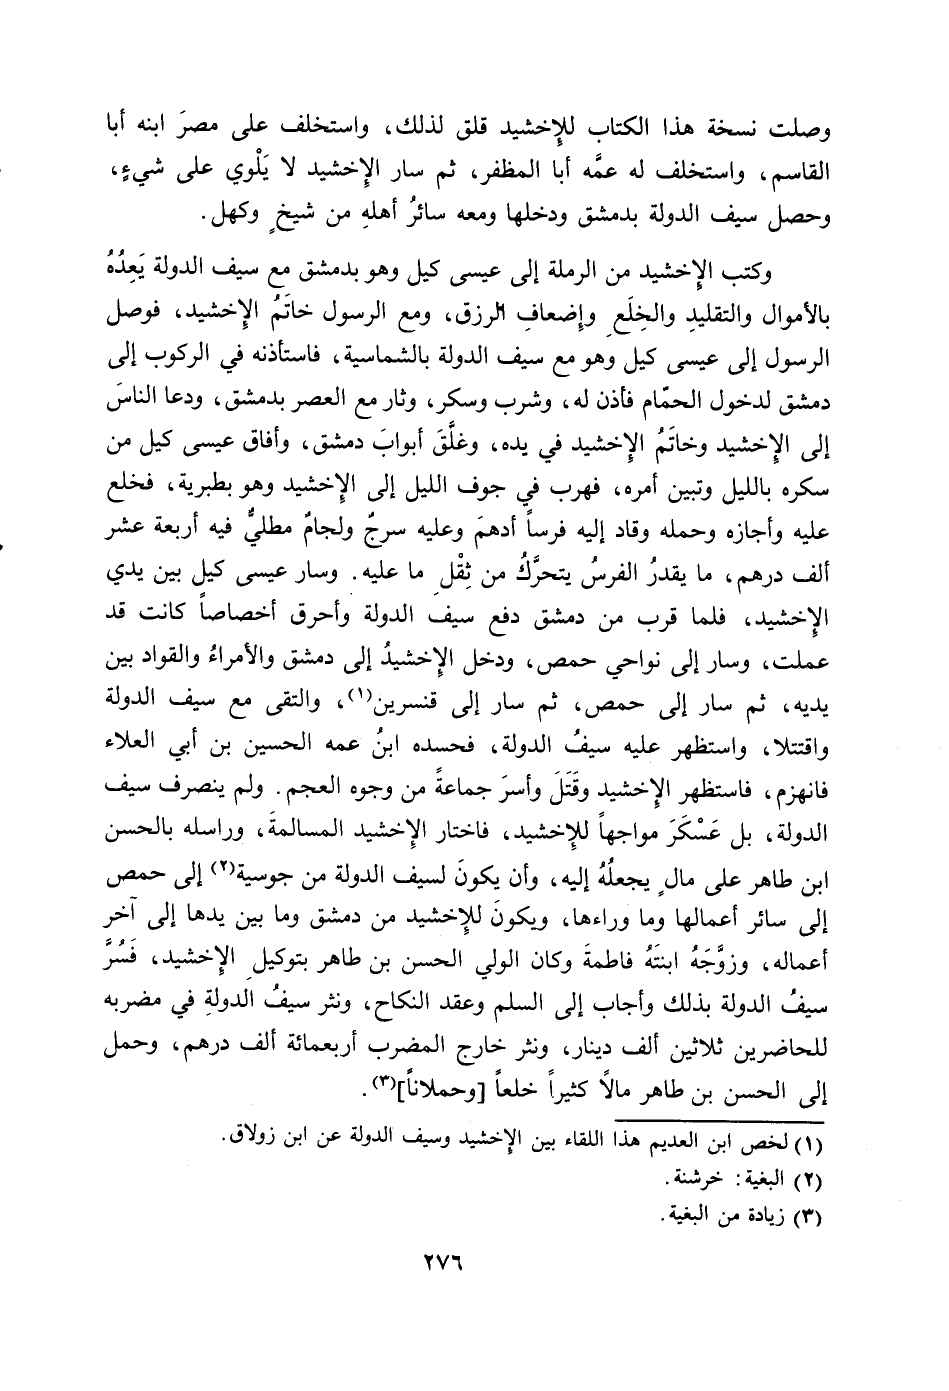 وصلت نسخة هذا الكتاب للإخشيد قلق لذلك، واستخلف على مصرَ ابنه أبا
القاسم، واستخلف له عمَّه أبا المظفر، ثم سار الإخشيد لا يَلْوي على شيءٍ،
وحصل سيف الدولة بدمشق ودخلها ومعه سائرُ أهلهِ من شيخٍ وكهل.
وكتب الإخشيد من الرملة إلى عيسى كيل وهو بدمشق مع سيف الدولة يَعِدُهُ
بالأموال والتقليدِ والخِلَعِ وإضعافِ الرزق، ومع الرسول خاتَمُ الإخشيد، فوصل
الرسول إلى عيسى كيل وهو مع سيف الدولة بالشماسية، فاستأذنه في الركوب إلى
دمشق لدخول الحمّام فأذن له، وشرب وسكر، وثار مع العصر بدمشق، ودعا الناسَ
إلى الإخشيد وخاتَمُ الإخشيد في يده، وغلَّقَ أبوابَ دمشق، وأفاق عيسى كيل من
سكره بالليل وتبين أمره، فهرب في جوف الليل إلى الإخشيد وهو بطبرية، فخلع
عليه وأجازه وحمله وقاد إليه فرساً أدهمَ وعليه سرجٌ ولجامٌ مطليٌّ فيه أربعة عشر
ألف درهم، ما يقدرُ الفرسُ يتحرَّكُ من ثِقْلِ ما عليه. وسار عيسى كيل بين يدي
الإخشيد، فلما قرب من دمشق دفع سيف الدولة وأحرق أخصاصاً كانت قد
عملت، وسار إلى نواحي حمص، ودخل الإخشيدُ إلى دمشق والأمراءُ والقواد بين
يديه، ثم سار إلى حمص، ثم سار إلى قنسرين(١)، والتقى مع سيف الدولة
واقتتلا، واستظهر عليه سيفُ الدولة، فحسده ابنُ عمه الحسين بن أبي العلاء
فانهزم، فاستظهر الإخشيد وقَتَلَ وأسرَ جماعةً من وجوه العجم. ولم ينصرف سيف
الدولة، بل عَسْكَرَ مواجهاً للإخشيد، فاختار الإخشيد المسالمةَ، وراسله بالحسن
ابن طاهر على مالٍ يجعلُهُ إليه، وأن يكونَ لسيف الدولة من جوسية(٢) إلى حمص
إلى سائر أعمالها وما وراءها، ويكونَ للإخشيد من دمشق وما بين يدها إلى آخر
أعماله، وزوَّجَهُ ابنتَهُ فاطمةَ وكان الولي الحسن بن طاهر بتوكيلِ الإخشيد، فَسُرَّ
سيفُ الدولة بذلك وأجاب إلى السلم وعقد النكاح، ونثر سيفُ الدولةِ في مضربه
للحاضرين ثلاثين ألف دينار، ونثر خارج المضرب أربعمائة ألف درهم، وحمل
إلى الحسن بن طاهر مالاً كثيراً خلعاً [وحملاناً](٣).
(١) لخص ابن العديم هذا اللقاء بين الإخشيد وسيف الدولة عن ابن زولاق.
(٢) البغية: خرشنة.
(٣) زيادة من البغية.
٢٧٦